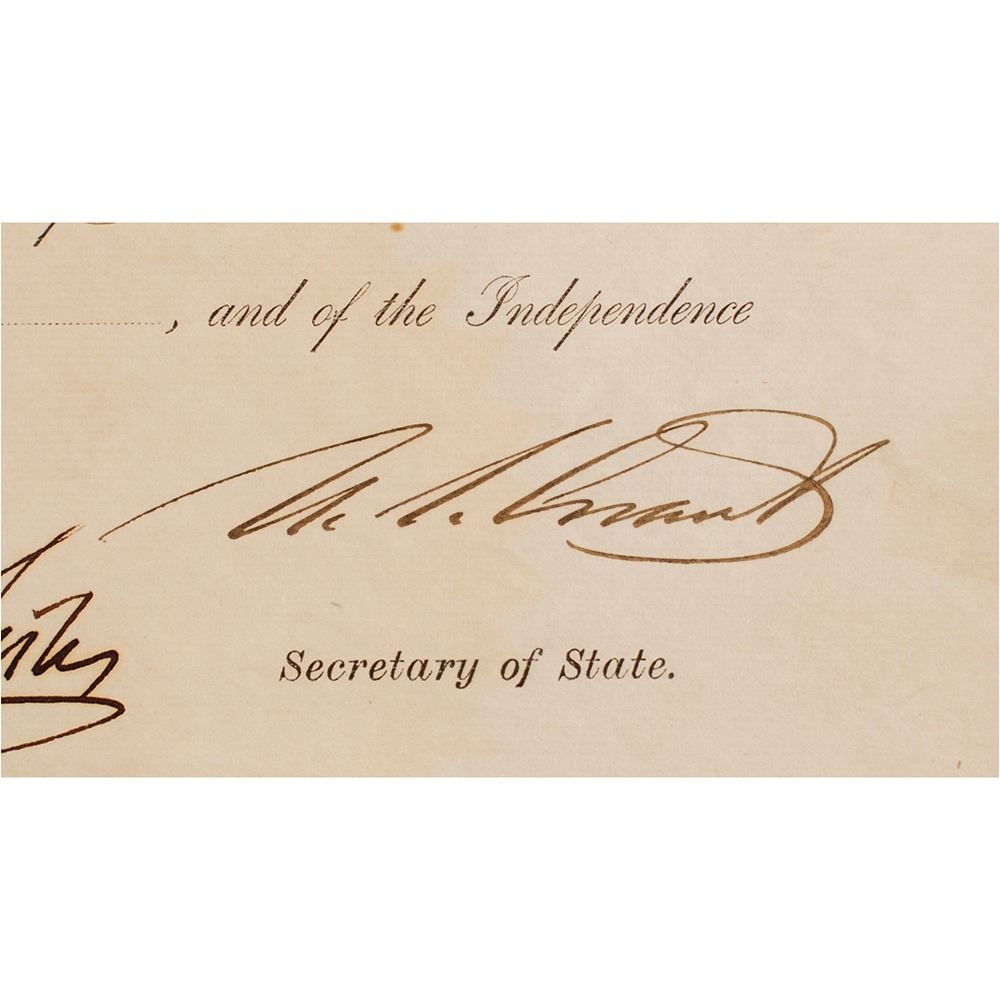 , and of the Independence
U. S. Grant
Secretary of State.